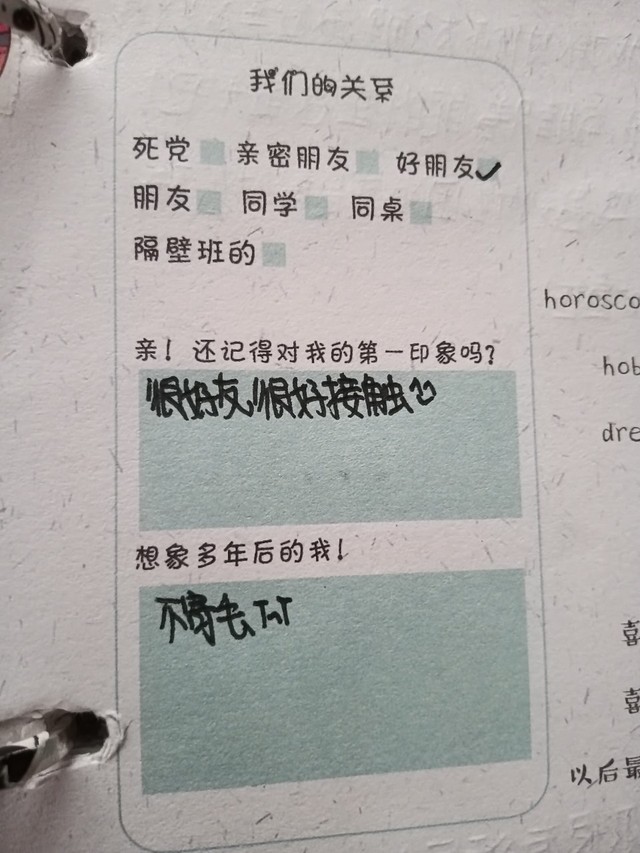 我们的关系
死党 亲密朋友 好朋友✓
朋友 同学 同桌
隔壁班的
亲！还记得对我的第一印象吗？
很好友,很好接触
想象多年后的我！
TnT
horosco
hob
dre
喜
喜
以后最